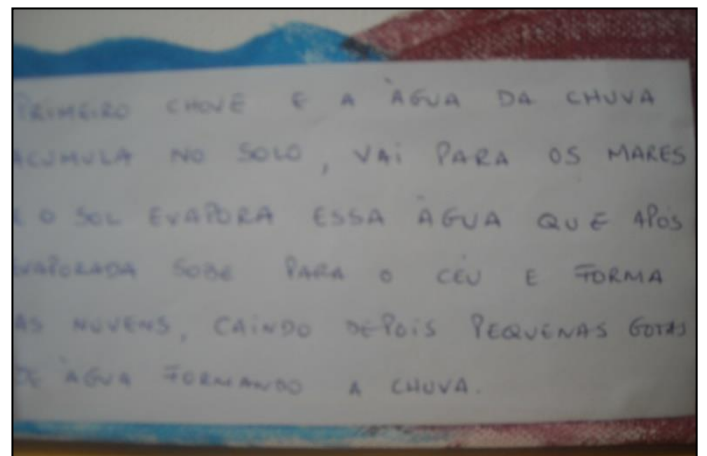 PRIMEIRO CHOVE E A ÀGUA DA CHUVA
ACUMULA NO SOLO, VAI PARA OS MARES
E O SOL EVAPORA ESSA ÀGUA QUE APÓS
EVAPORADA SOBE PARA O CÉU E FORMA
AS NUVENS, CAINDO DEPOIS PEQUENAS GOTAS
DE ÀGUA FORMANDO A CHUVA.